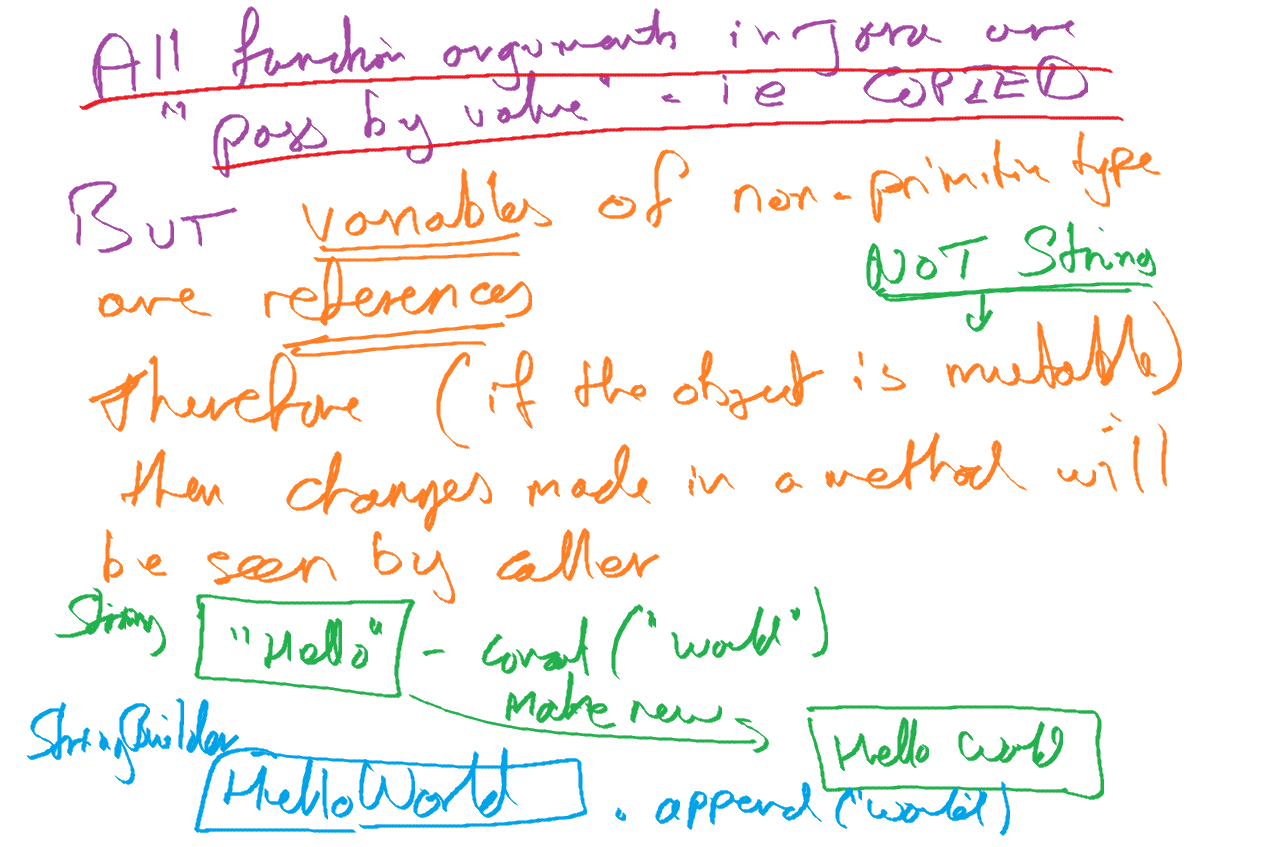 All function arguments in Java are
"pass by value" - ie COPIED
BUT variables of non-primitive type
NOT String
are references
therefore (if the object is mutable)
then changes made in a method will
be seen by caller
String "Hello" - concat ("world")
Make new
Hello World
StringBuilder
HelloWorld . append ("world")